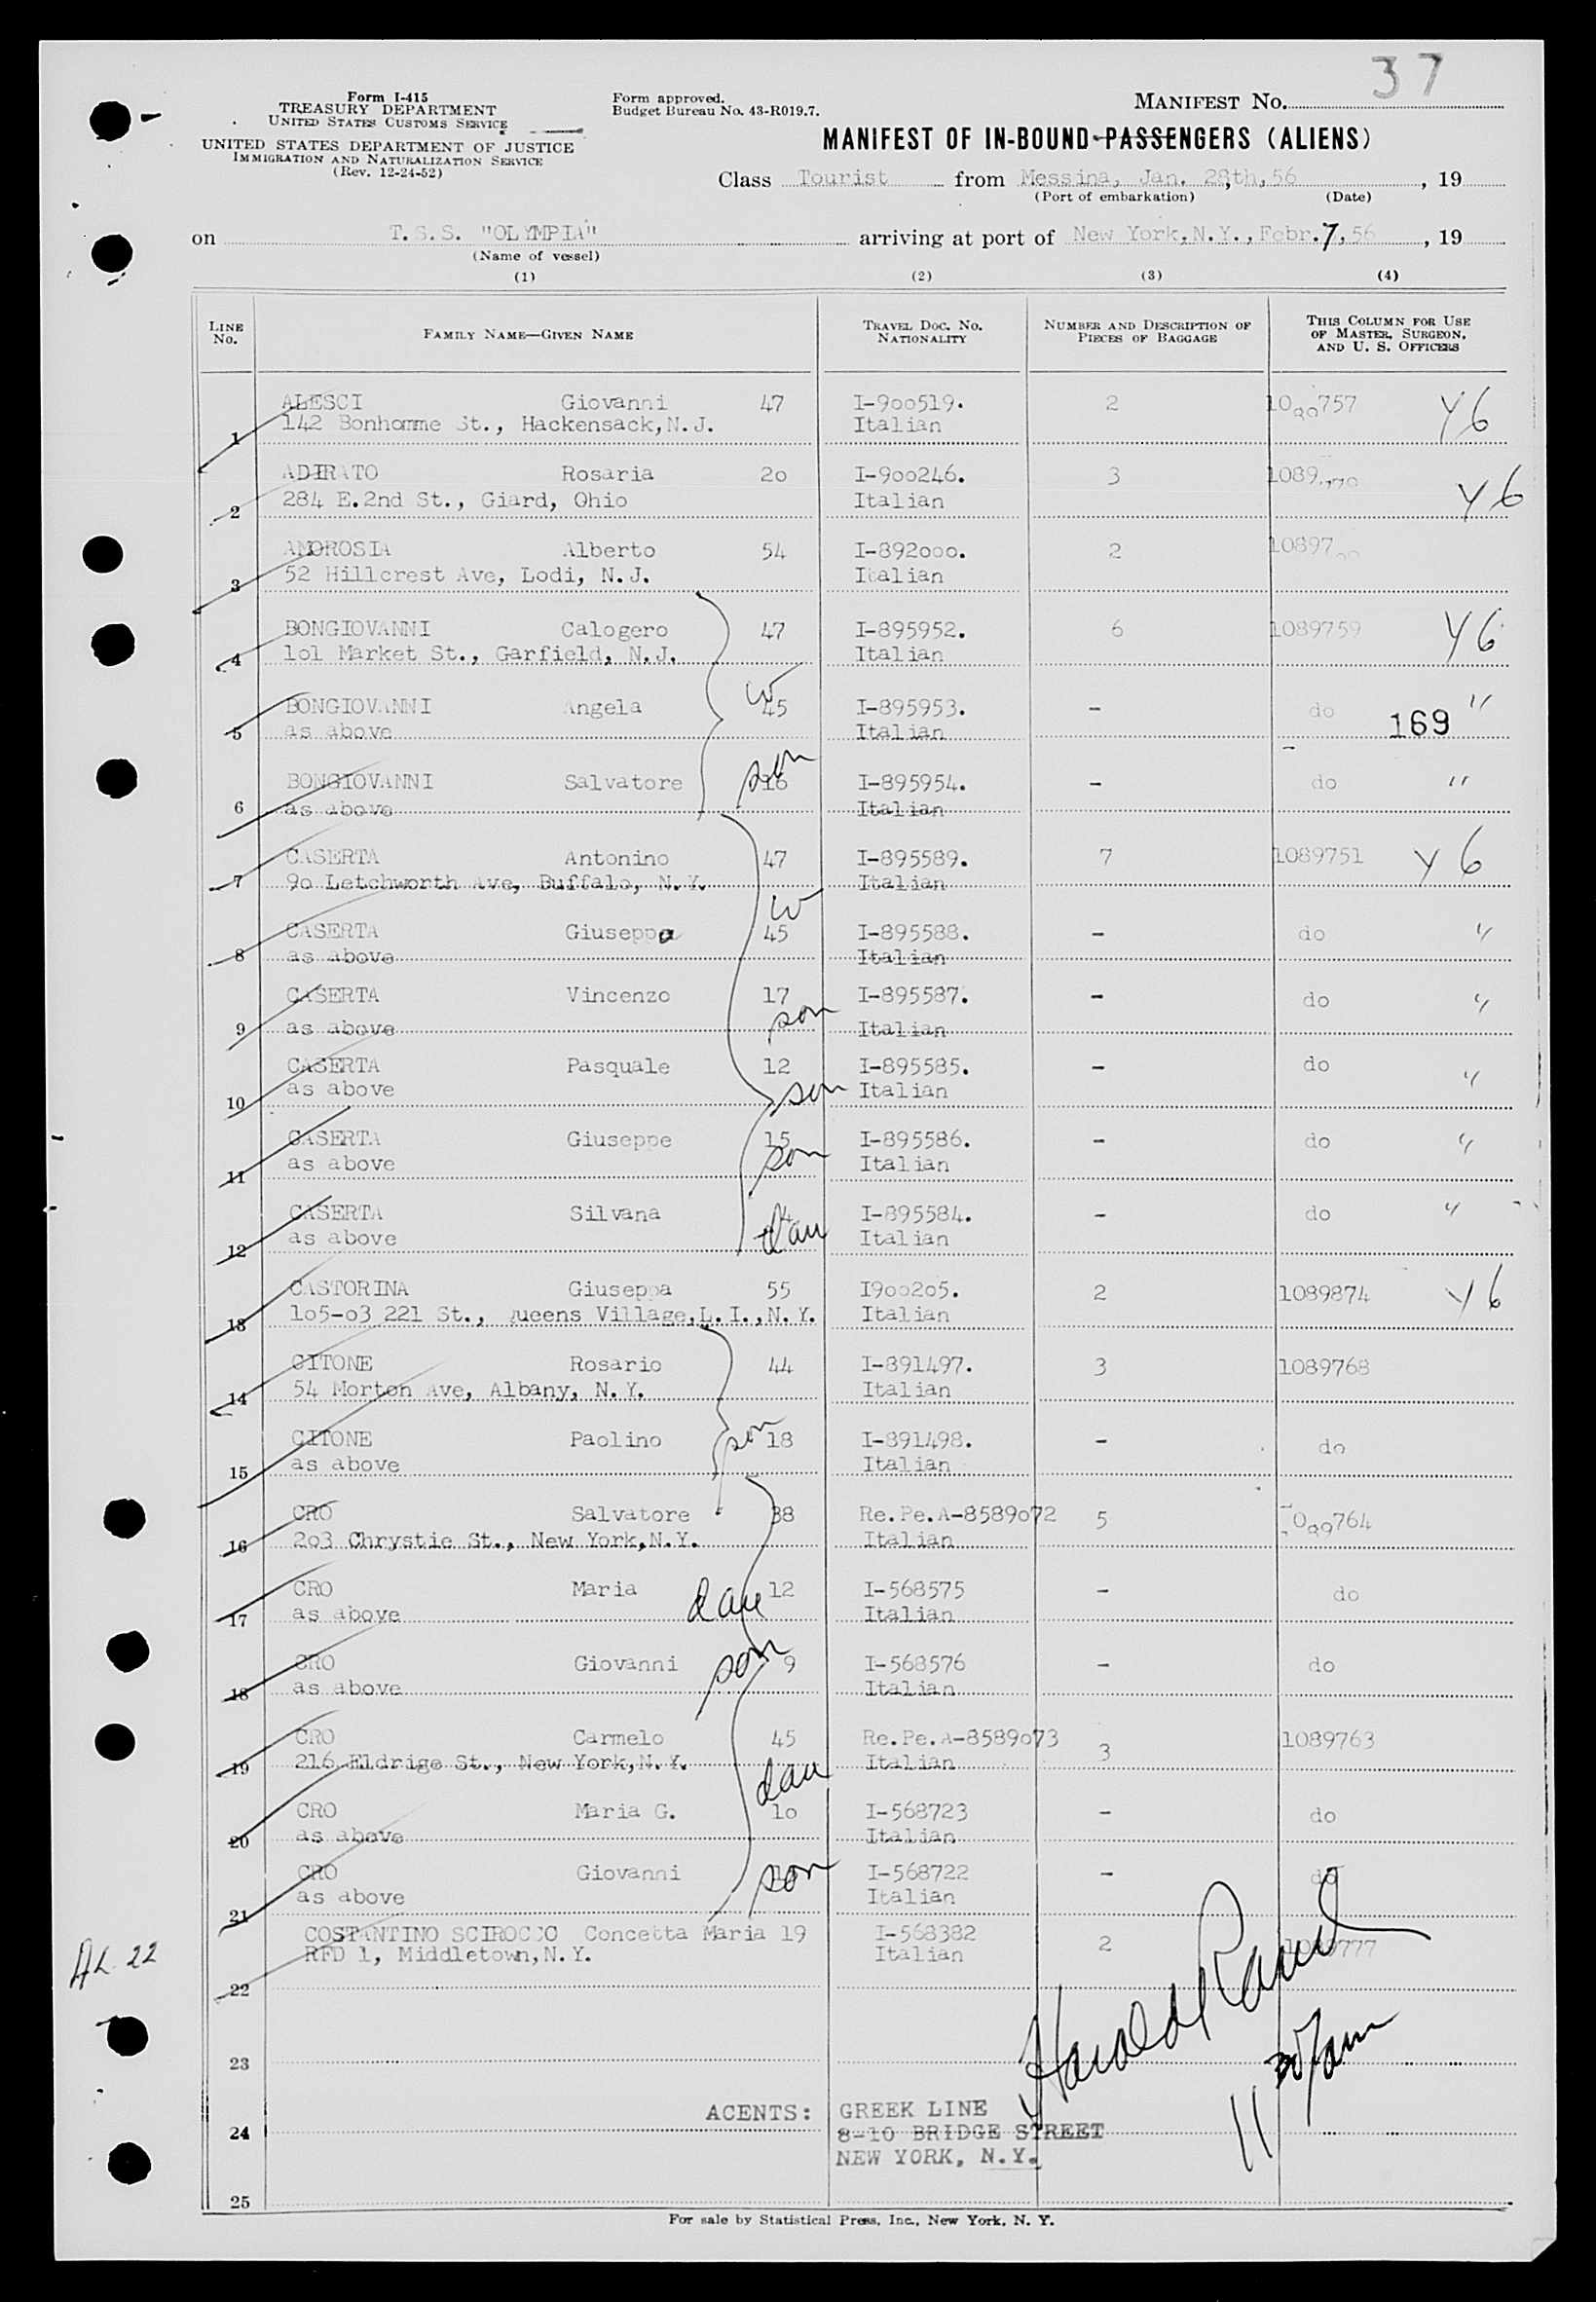 37
Form I-415
TREASURY DEPARTMENT
UNITED STATES CUSTOMS SERVICE
UNITED STATES DEPARTMENT OF JUSTICE
IMMIGRATION AND NATURALIZATION SERVICE
(Rev. 12-24-52)
Form approved.
Budget Bureau No. 43-R019.7.
MANIFEST No.
MANIFEST OF IN-BOUND PASSENGERS (ALIENS)
Class Tourist from Messina, Jan. 28th, 56 , 19
(Port of embarkation) (Date)
on T.S.S. "OLYMPIA" arriving at port of New York, N.Y., Febr. 7, 56 , 19
(Name of vessel)
(1) (2) (3) (4)
LINE No. FAMILY NAME—GIVEN NAME TRAVEL DOC. NO. NATIONALITY NUMBER AND DESCRIPTION OF PIECES OF BAGGAGE THIS COLUMN FOR USE OF MASTER, SURGEON, AND U. S. OFFICERS
ALESCI Giovanni 47 I-900519. 2 1089757 Y6
1 142 Bonhomme St., Hackensack, N.J. Italian
ADIRATO Rosaria 2o I-900246. 3 1089 Y6
2 284 E.2nd St., Giard, Ohio Italian
AMOROSIA Alberto 54 I-892ooo. 2 10897
3 52 Hillcrest Ave, Lodi, N.J. Italian
BONGIOVANNI Calogero 47 I-895952. 6 1089759 Y6
4 lol Market St., Garfield, N.J. Italian
BONGIOVANNI Angela W 45 I-895953. - do 169 "
5 as above Italian
BONGIOVANNI Salvatore son 16 I-895954. - do "
6 as above Italian
CASERTA Antonino 47 I-895589. 7 1089751 Y6
7 9o Letchworth Ave, Buffalo, N.Y. Italian
CASERTA Giuseppa W 45 I-895588. - do "
8 as above Italian
CASERTA Vincenzo 17 I-895587. - do "
9 as above son Italian
CASERTA Pasquale 12 I-895585. - do "
10 as above son Italian
CASERTA Giuseppe 15 I-895586. - do "
11 as above son Italian
CASERTA Silvana 4 I-895584. - do "
12 as above dau Italian
CASTORINA Giuseppa 55 I9oo2o5. 2 1089874 Y6
13 lo5-o3 221 St., Queens Village, L.I., N.Y. Italian
CITONE Rosario 44 I-891497. 3 1089768
14 54 Morton Ave, Albany, N.Y. Italian
CITONE Paolino son 18 I-891498. - do
15 as above Italian
CRO Salvatore 38 Re.Pe.A-8589o72 5 1089764
16 2o3 Chrystie St., New York, N.Y. Italian
CRO Maria dau 12 I-568575 - do
17 as above Italian
CRO Giovanni son 9 I-568576 - do
18 as above Italian
CRO Carmelo 45 Re.Pe.A-8589o73 3 1089763
19 216 Eldrige St., New York, N.Y. Italian
CRO Maria G. dau lo I-568723 - do
20 as above Italian
CRO Giovanni son I-568722 - do
21 as above Italian
COSTANTINO SCIROCCO Concetta Maria 19 I-568382 2 1089777
RFD 1, Middletown, N.Y. Italian
22
AL 22
Harold
23
11 30/am
24 AGENTS: GREEK LINE
8-10 BRIDGE STREET
NEW YORK, N.Y.
25
For sale by Statistical Press, Inc., New York, N. Y.